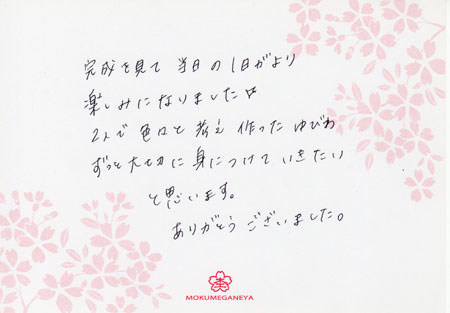 完成を見て 当日の1日がより
楽しみになりました☆
2人で色々と考え作ったゆびわ
ずっと大切に身につけていきたい
と思います。
ありがとうございました。
MOKUMEGANEYA